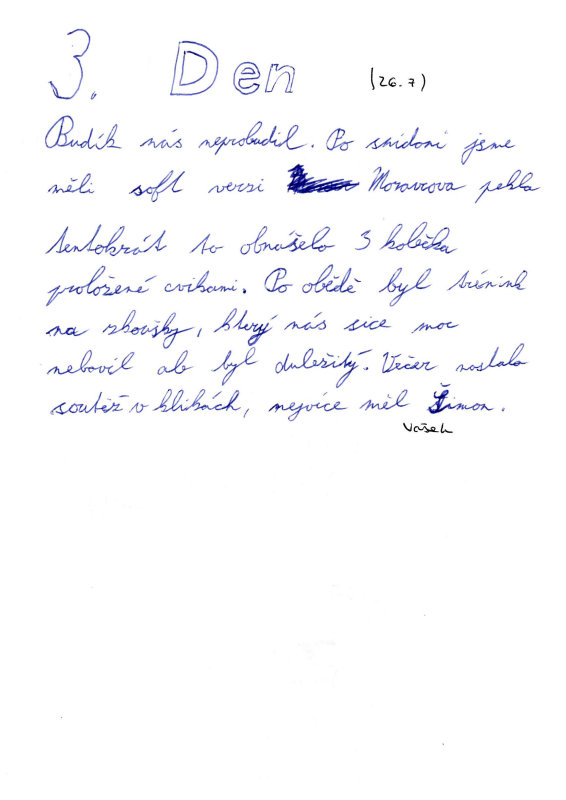 3. Den (26.7)
Budík nás neprobudil. Po snídani jsme
měli soft verzi Moravcova pekla
tentokrát to obnášelo 3 kolečka
proložené cvikami. Po obědě byl trénink
na zkoušky, který nás sice moc
nebavil ale byl duležitý. Večer nastala
soutěž v klikách, nejvíce měl Šimon.
Vašek